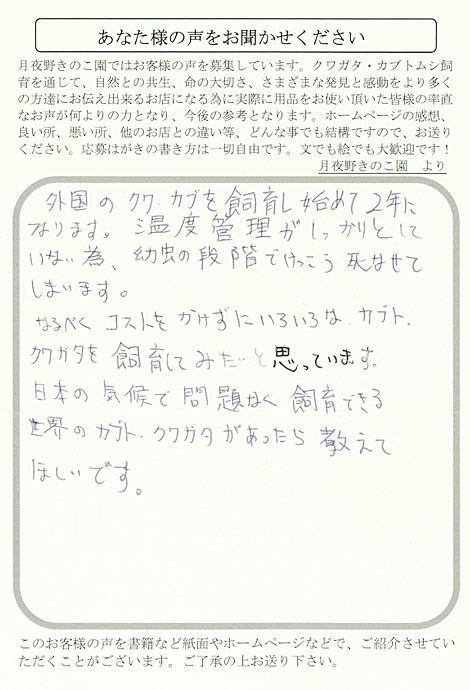 あなた様の声をお聞かせください
月夜野きのこ園ではお客様の声を募集しています。クワガタ・カブトムシ飼
育を通じて、自然との共生、命の大切さ、さまざまな発見と感動をより多く
の方達にお伝え出来るお店になる為に実際に用品をお使い頂いた皆様の率直
なお声が何よりの力となり、今後の参考となります。ホームページの感想、
良い所、悪い所、他のお店との違い等、どんな事でも結構ですので、お送り
ください。応募はがきの書き方は一切自由です。文でも絵でも大歓迎です！
月夜野きのこ園　より
外国のクワ・カブを飼育し始めて2年に
なります。温度管理がしっかりとして
いない為、幼虫の段階でけっこう死なせて
しまいます。
なるべくコストをかけずにいろいろなカブト・
クワガタを飼育してみたいと思っています。
日本の気候で問題なく飼育できる
世界のカブト・クワガタがあったら教えて
ほしいです。
このお客様の声を書籍など紙面やホームページなどで、ご紹介させてい
ただくことがございます。ご了承の上お送り下さい。